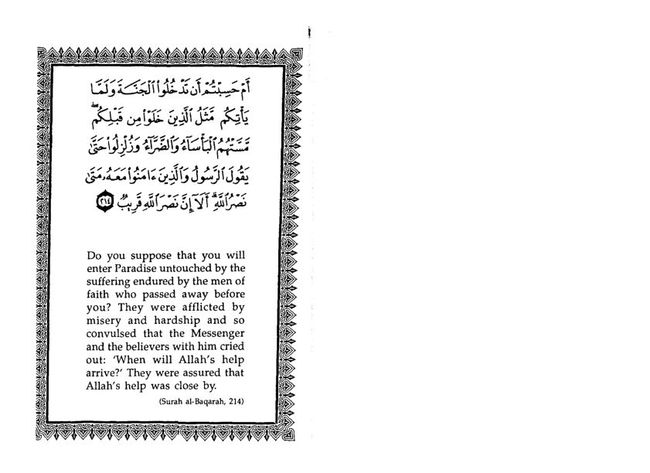 أَمْ حَسِبْتُمْ أَن تَدْخُلُوا۟ ٱلْجَنَّةَ وَلَمَّا
يَأْتِكُم مَّثَلُ ٱلَّذِينَ خَلَوْا۟ مِن قَبْلِكُم ۖ
مَّسَّتْهُمُ ٱلْبَأْسَآءُ وَٱلضَّرَّآءُ وَزُلْزِلُوا۟ حَتَّىٰ
يَقُولَ ٱلرَّسُولُ وَٱلَّذِينَ ءَامَنُوا۟ مَعَهُۥ مَتَىٰ
نَصْرُ ٱللَّهِ ۗ أَلَآ إِنَّ نَصْرَ ٱللَّهِ قَرِيبٌ ﴿٢١٤﴾
Do you suppose that you will
enter Paradise untouched by the
suffering endured by the men of
faith who passed away before
you? They were afflicted by
misery and hardship and so
convulsed that the Messenger
and the believers with him cried
out: 'When will Allah's help
arrive?' They were assured that
Allah's help was close by.
(Surah al-Baqarah, 214)